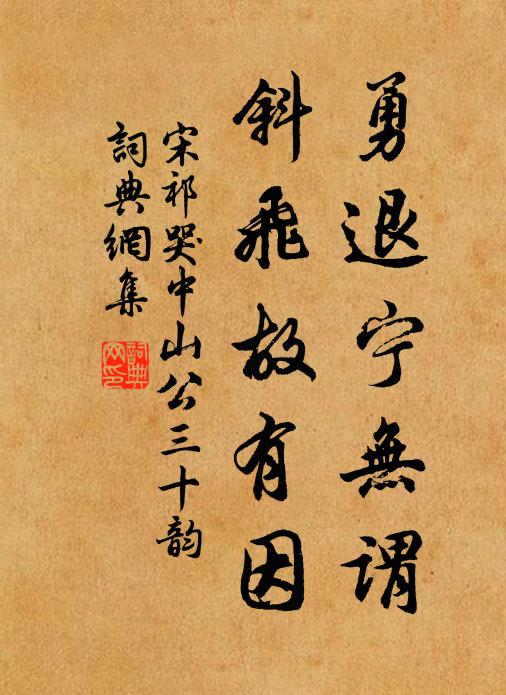 勇退宁無謂
斜飛故有因
宋祁哭中山公三十韵
詞典網集
詞典網印